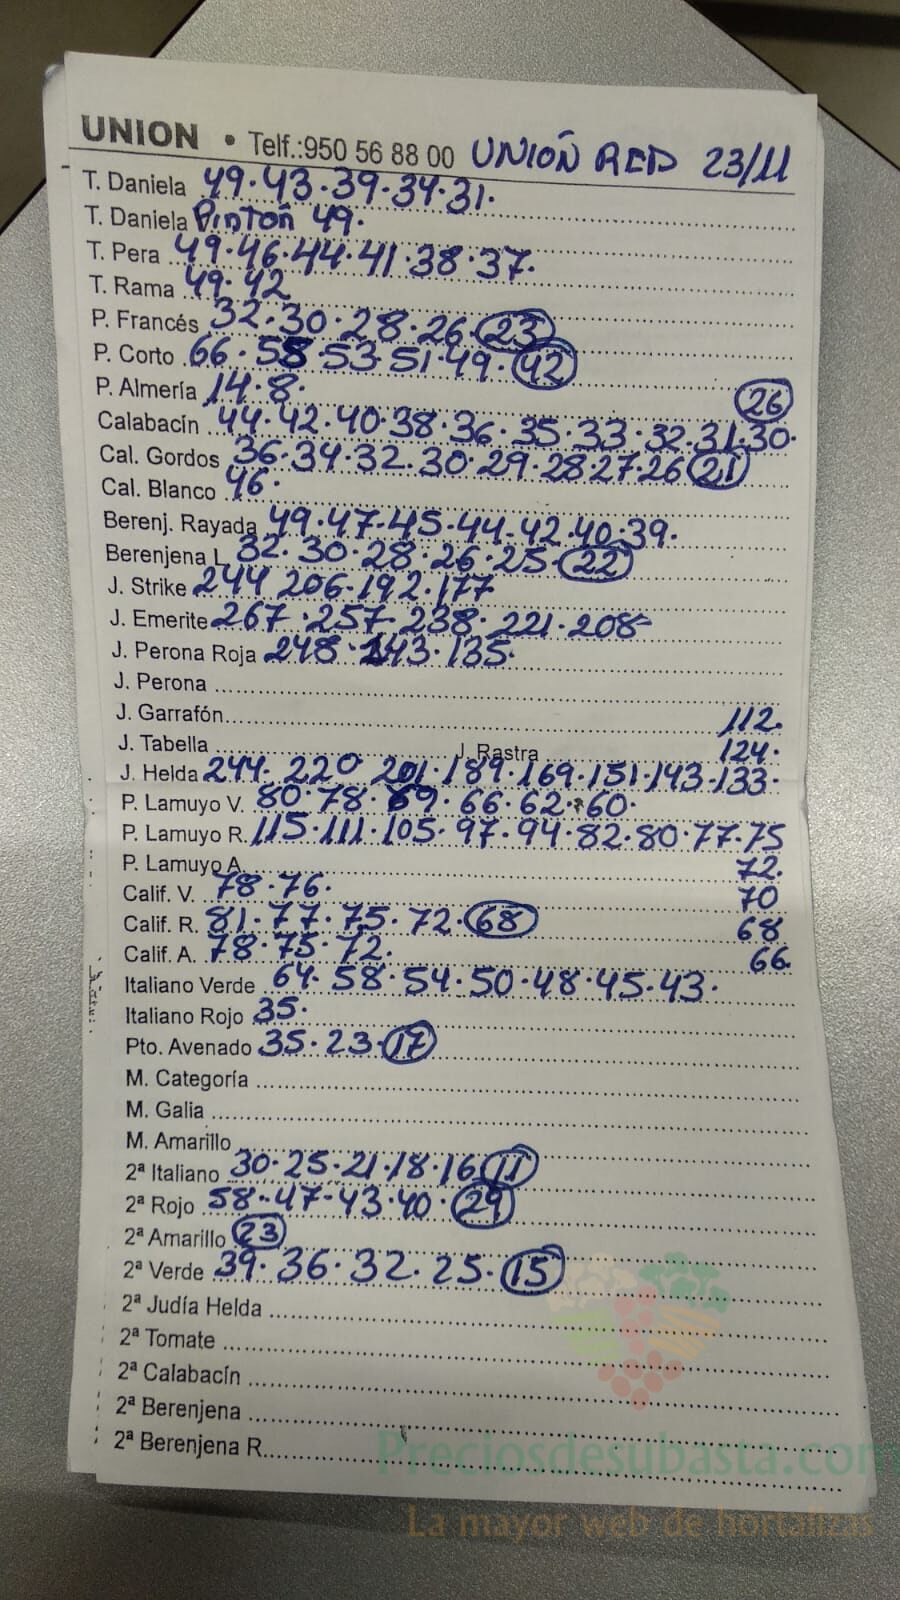 UNION • Telf.:950 56 88 00 UNIOÑ RED 23/11
T. Daniela 49.43.39.34.31.
T. Daniela PINTOÑ 49.
T. Pera 49.46.44.41.38.37.
T. Rama 49.42
P. Francés 32.30.28.26.23
P. Corto 66.58.53.51.49.42
P. Almería 14.8. 26
Calabacín 44.42.40.38.36.35.33.32.31.30.
Cal. Gordos 36.34.32.30.29.28.27.26 21
Cal. Blanco 46.
Berenj. Rayada 49.47.45.44.42.40.39.
Berenjena L 32.30.28.26.25.22
J. Strike 244 206.192.177
J. Emerite 267.257.238.221.208
J. Perona Roja 248.143.135.
J. Perona
J. Garrafón 112.
J. Tabella J. Rastra 124.
J. Helda 244.220 201.189.169.151.143.133.
P. Lamuyo V. 80.78.69.66.62.60.
P. Lamuyo R. 115.111.105.97.94.82.80.77.75
P. Lamuyo A. 72.
Calif. V. 78.76. 70
Calif. R. 81.77.75.72.68 68
Calif. A. 78.75.72. 66.
Italiano Verde 64.58.54.50.48.45.43.
Italiano Rojo 35.
Pto. Avenado 35.23.17
M. Categoría
M. Galia
M. Amarillo
2ª Italiano 30.25.21.18.16.11
2ª Rojo 58-47-43.40.29
2ª Amarillo 23
2ª Verde 39.36.32.25.15
2ª Judía Helda
2ª Tomate
2ª Calabacín
2ª Berenjena
2ª Berenjena R.
Preciosdesubasta.com
La mayor web de hortalizas